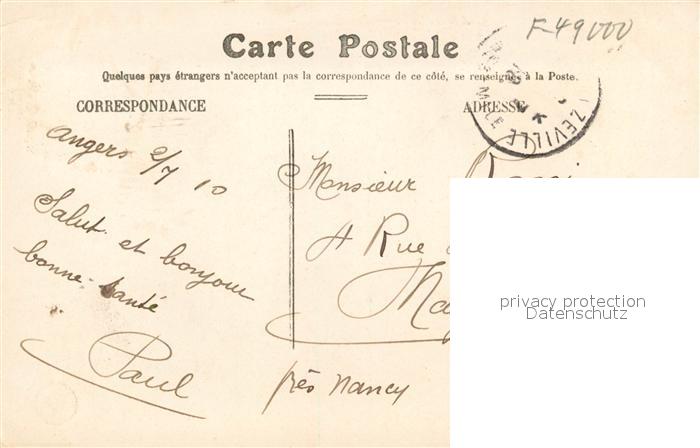 F-49000
Carte Postale
Quelques pays étrangers n'acceptant pas la correspondance de ce côté, se renseigner à la Poste.
CORRESPONDANCE
ADRESSE
ZEVILLE
Angers 2/7 10
Salut et bonjour
bonne santé
Paul
Monsieur
4 Rue
près Nancy
privacy protection
Datenschutz